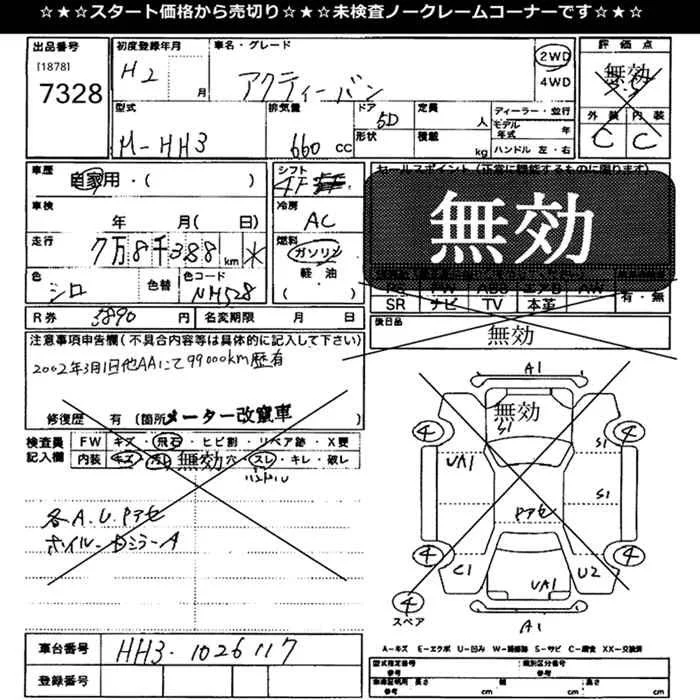 ☆★☆スタート価格から売切り☆★☆未検査ノークレームコーナーです☆★☆
出品番号
[1878]
7328
初度登録年月
H2
月
車名・グレード
アクティーバン
2WD
4WD
評価点
無効
外装
内装
C
C
型式
M-HH3
排気量
660 cc
ドア
5D
形状
定員
人
積載
kg
ディーラー・並行
モデル年式
年
ハンドル 左・右
車歴
自家用・( )
車検
年 月( 日)
走行
7万8千388 km *
色
シロ
色替
色コード
NH528
シフト
冷房
AC
燃料
ガソリン
軽油
( )
セールスポイント(正常に機能するものに限ります)
無効
PS
PW
ABS
エアB
AW
SR
ナビ
TV
本革
有・無
後日品
無効
R券
5890 円
名変期限
月 日
注意事項申告欄(不具合内容等は具体的に記入して下さい)
2002年3月1日他AAにて99000km歴有
修復歴 有 (箇所 メーター改竄車
検査員記入欄
FW
キズ・飛石・ヒビ割・リペア跡・X要
内装
キズ・汚れ・無効 穴・スレ・キレ・破レ
各A.U.Pアセ
A1
無効
S1
4
4
UA1
S1
S1
Pアセ
4
4
C1
UA1
U2
4
スペア
A1
A-キズ E-エクボ U-凹み W-補修跡 S-サビ C-腐食 XX-交換済
車台番号
HH3-1026117
登録番号
型式指定番号
参考
類別区分番号
参考
長さ
cm
幅
cm
高さ
cm